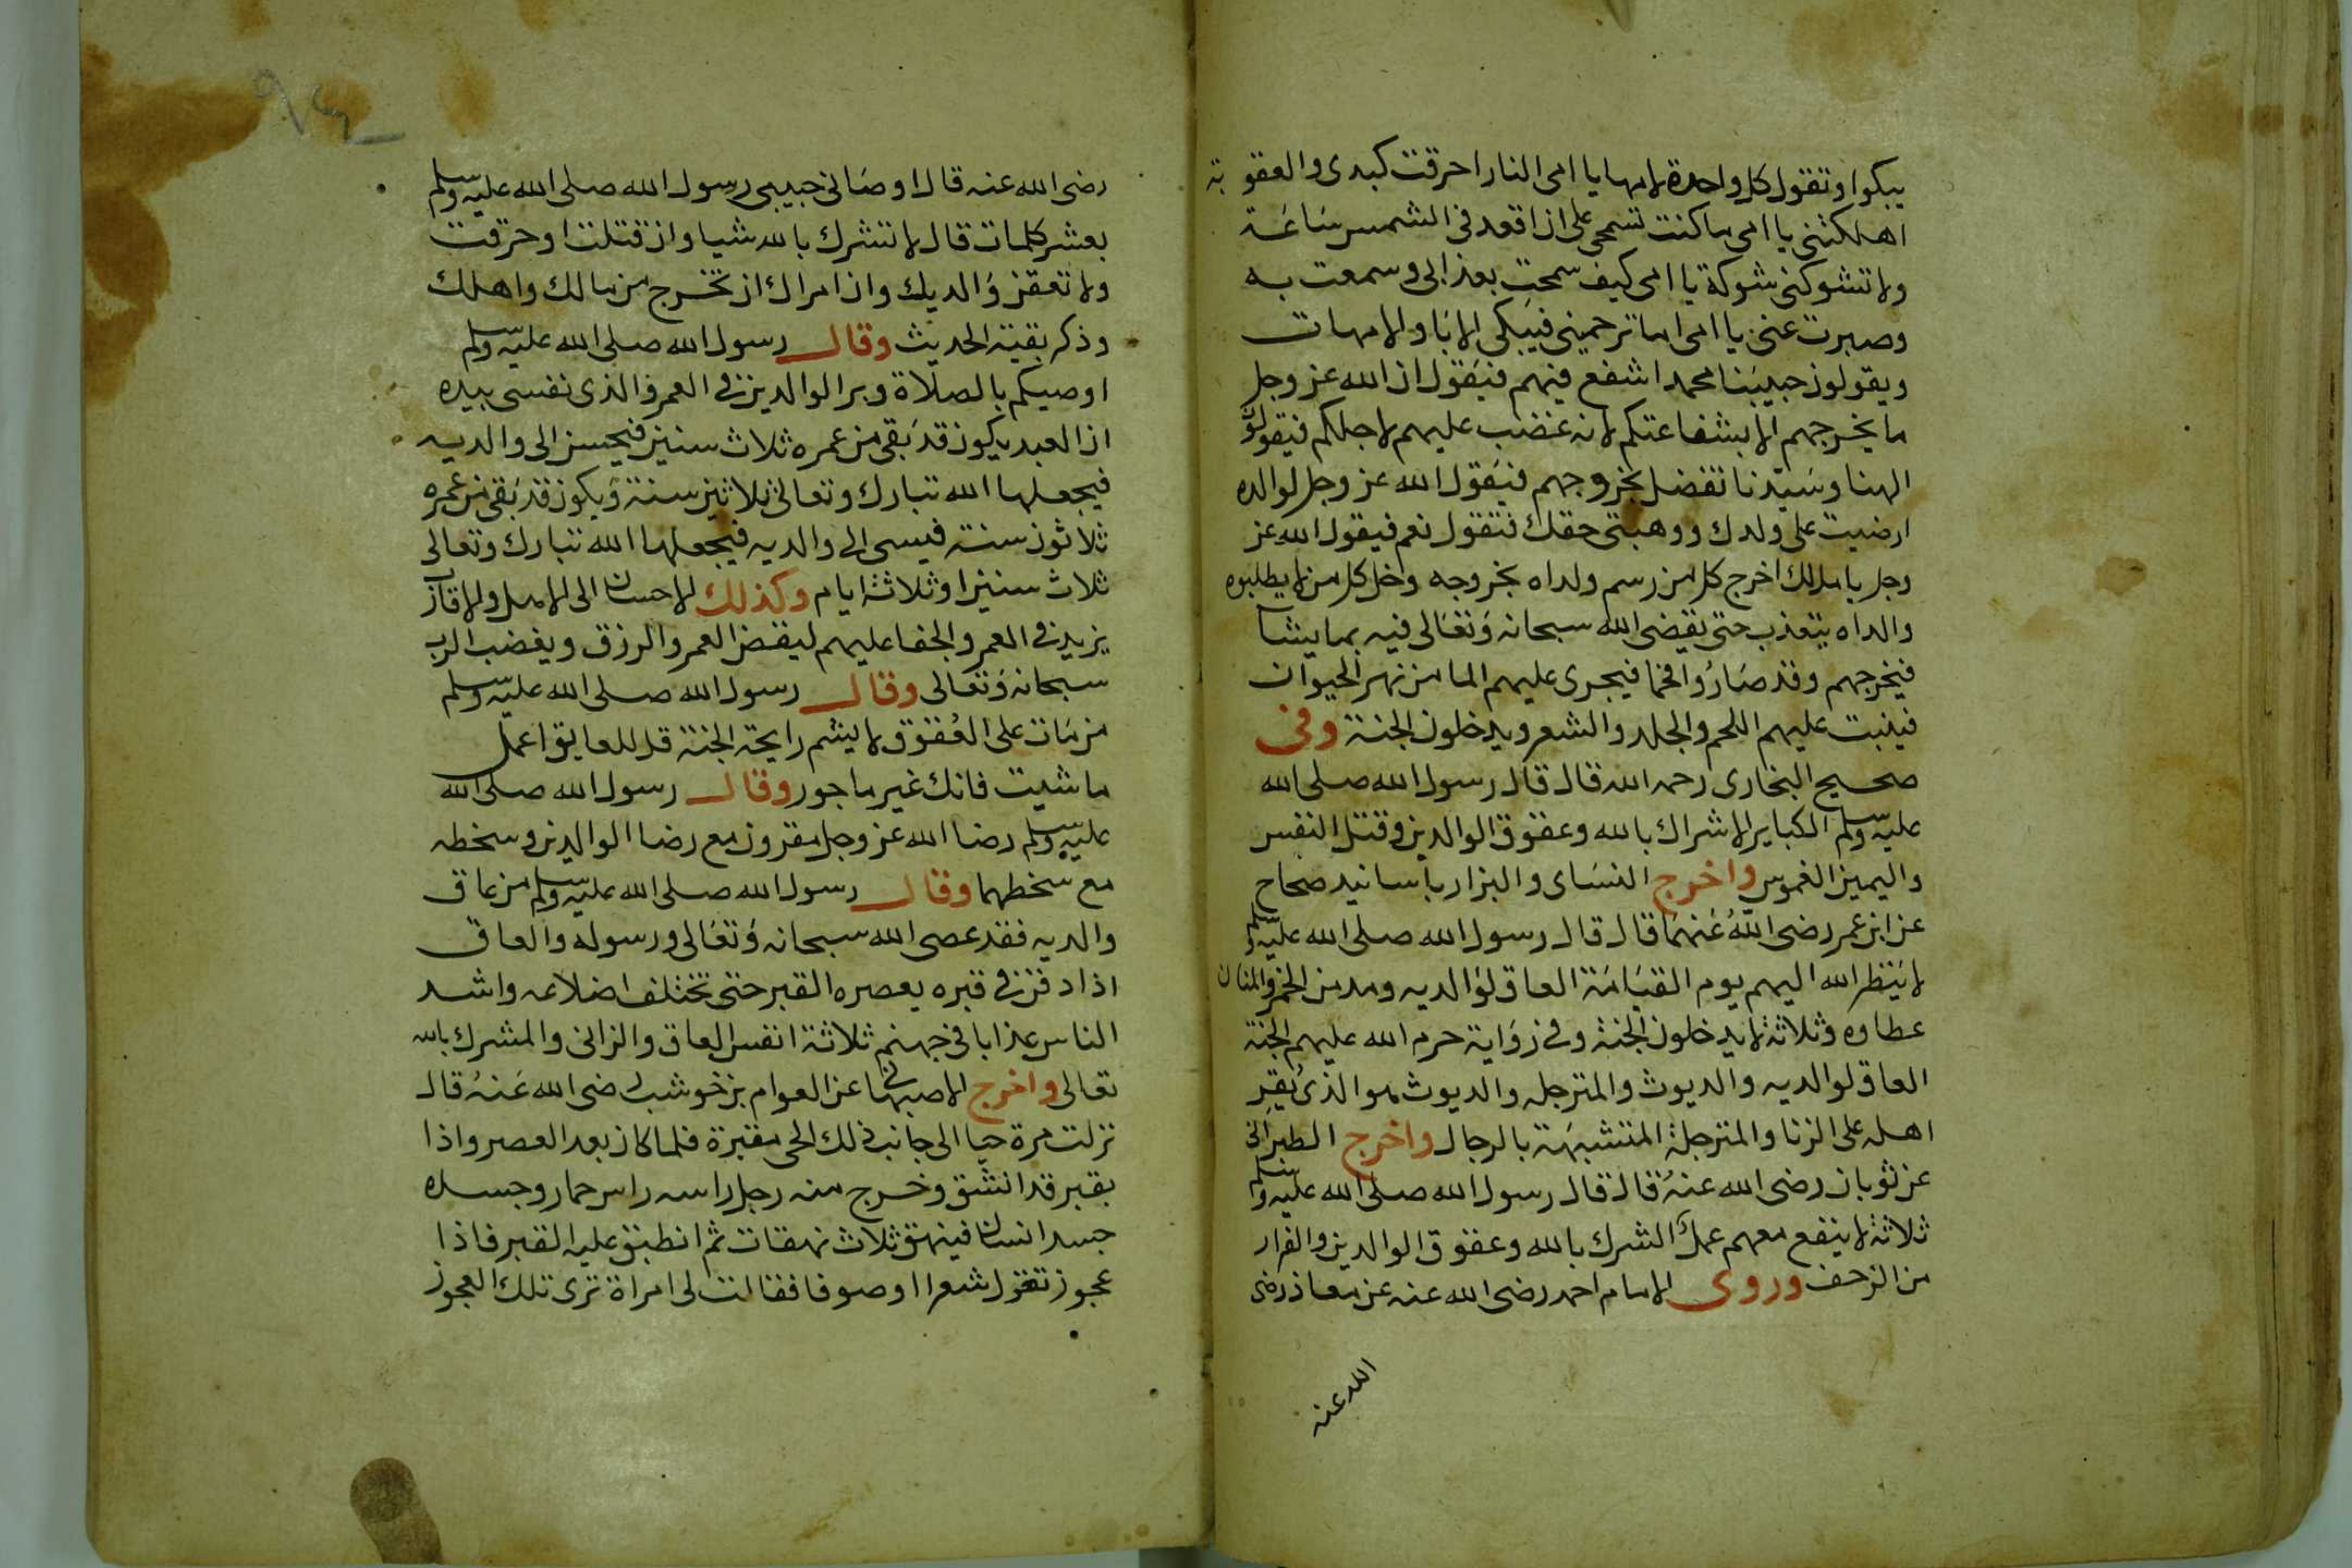 يبكوا وتقول كل واحدة لامها يا امى النار احرقت كبدى والعقوبة
اهلكتنى يا امى ما كنت تسمحى على ان اقعد فى الشمس ساعة
ولا تشوكنى شوكة يا امى كيف سمحت بعذابى وسمعت به
وصبرت عنى يا امى اما ترحمينى فيبكى الابا والامهات
ويقولون حبيبنا محمد اشفع فيهم فيقول ان الله عز وجل
ما يخرجهم الا بشفاعتكم لانه غضب عليهم لاجلكم فيقولون
الهنا وسيدنا تفضل بخروجهم فيقول الله عز وجل لوالده
ارضيت على ولدك ووهبتى حقك فتقول نعم فيقول الله عز
وجل يا مالك اخرج كل من رسم ولداه بخروجه وخل كل من لا يطلبوه
والداه يتعذب حتى يقضى الله سبحانه وتعالى فيه بما يشا
فيخرجهم وقد صاروا فحما فيجرى عليهم الما من نهر الحيوان
فينبت عليهم اللحم والجلد والشعر ويدخلون الجنة وفى
صحيح البخارى رحمه الله قال قال رسول الله صلى الله
عليه وسلم الكباير الاشراك بالله وعقوق الوالدين وقتل النفس
واليمين الغموس واخرج النساى والبزار باسانيد صحاح
عن ابن عمر رضى الله عنهما قال قال رسول الله صلى الله عليه وسلم
لا ينظر الله اليهم يوم القيامة العاق لوالديه ومدمن الخمر والمنان
عطاوه وثلاثة لا يدخلون الجنة وفى رواية حرم الله عليهم الجنة
العاق لوالديه والديوث والمترجله والديوث هو الذى يقر
اهله على الزنا والمترجلة المتشبهة بالرجال واخرج الطبرانى
عن ثوبان رضى الله عنه قال قال رسول الله صلى الله عليه وسلم
ثلاثة لا ينفع معهم عمل الشرك بالله وعقوق الوالدين والفرار
من الزحف وروى الامام احمد رضى الله عنه عن معاذ رضى
الله عنه
٩٤
رضى الله عنه قال اوصانى حبيبى رسول الله صلى الله عليه وسلم
بعشر كلمات قال لا تشرك بالله شيا وان قتلت او حرقت
ولا تعقن والديك وان امراك ان تخرج من مالك واهلك
وذكر بقية الحديث وقال رسول الله صلى الله عليه وسلم
اوصيكم بالصلاة وبر الوالدين فى العمر والذى نفسى بيده
ان العبد يكون قد بقى من عمره ثلاث سنين فيحسن الى والديه
فيجعلها الله تبارك وتعالى ثلاثين سنة ويكون قد بقى من عمره
ثلاثون سنة فيسى الى والديه فيجعلها الله تبارك وتعالى
ثلاث سنين او ثلاثة ايام وكذلك الاحسان الى الاهل والاقارب
يزيد فى العمر والجفا عليهم لينقص العمر والرزق ويغضب الرب
سبحانه وتعالى وقال رسول الله صلى الله عليه وسلم
من مات على العقوق لا يشم رايحة الجنة قل للعايق اعمل
ما شيت فانك غير ماجور وقال رسول الله صلى الله
عليه وسلم رضا الله عز وجل مقرون مع رضا الوالدين وسخطه
مع سخطهما وقال رسول الله صلى الله عليه وسلم من عاق
والديه فقد عصى الله سبحانه وتعالى ورسوله والعاق
اذا دفن فى قبره يعصره القبر حتى تختلف اضلاعه واشد
الناس عذابا فى جهنم ثلاثة انفس العاق والزانى والمشرك بالله
تعالى واخرج الاصبهانى عن العوام بن خوشب رضى الله عنه قال
نزلت مرة حيا الى جانب ذلك الحى مقبرة فلما كان بعد العصر واذا
بقبر قد انشق وخرج منه رجل راسه راس حمار وجسده
جسد انسان فينهق ثلاث نهقات ثم انطبق عليه القبر فاذا
عجوز تغزل شعرا او صوفا فقالت لى امراة ترى تلك العجوز